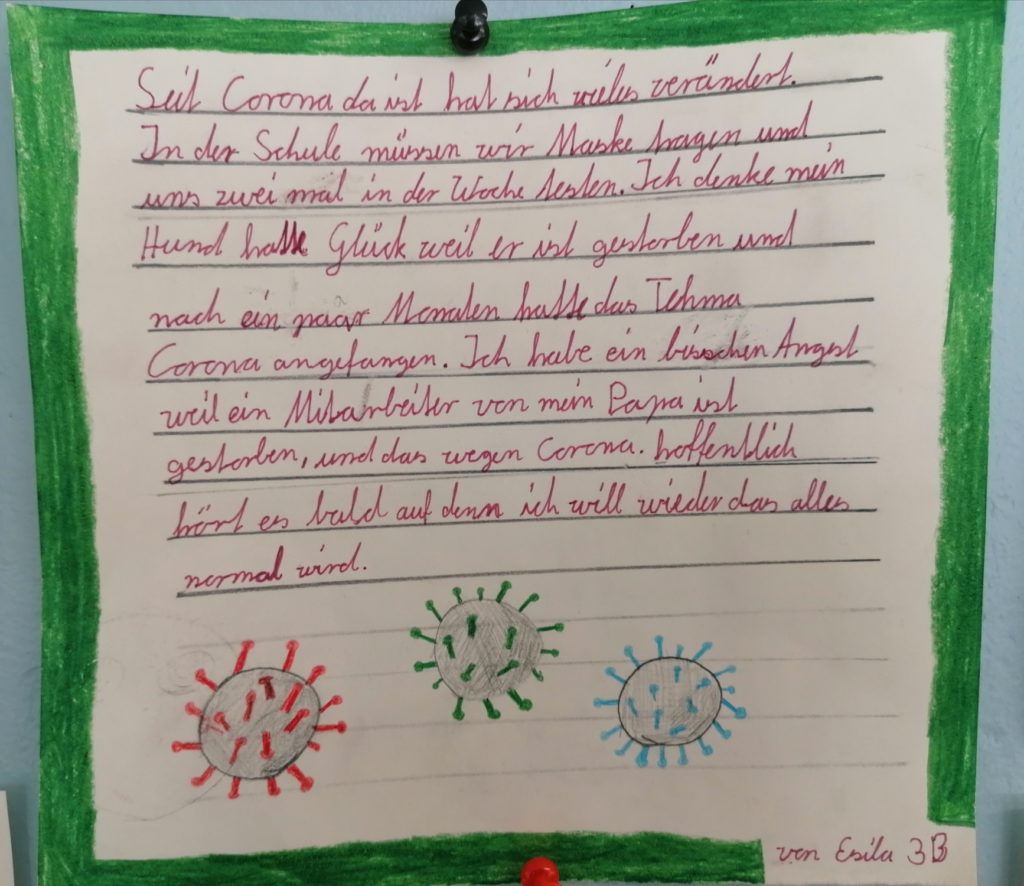 Seit Corona da ist hat sich vieles verändert.
In der Schule müssen wir Maske tragen und
uns zwei mal in der Woche testen. Ich denke mein
Hund hatte Glück weil er ist gestorben und
nach ein paar Monaten hatte das Tehma
Corona angefangen. Ich habe ein bisschen Angest
weil ein Mitarbeiter von mein Papa ist
gestorben, und das wegen Corona. hoffentlich
hört es bald auf denn ich will wieder das alles
normal wird.
von Esila 3B